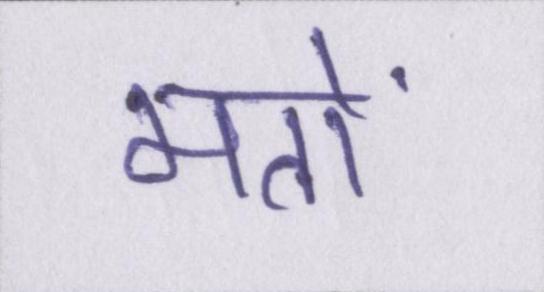 मतों